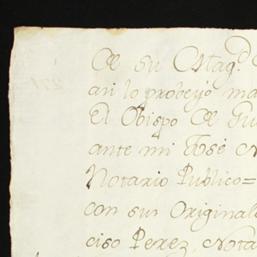 De su Mag.d
asi lo probeyó ma
El Obispo De Gu
ante mi José N
Notario Publico=
con sus Original
ciso Perez, Nota